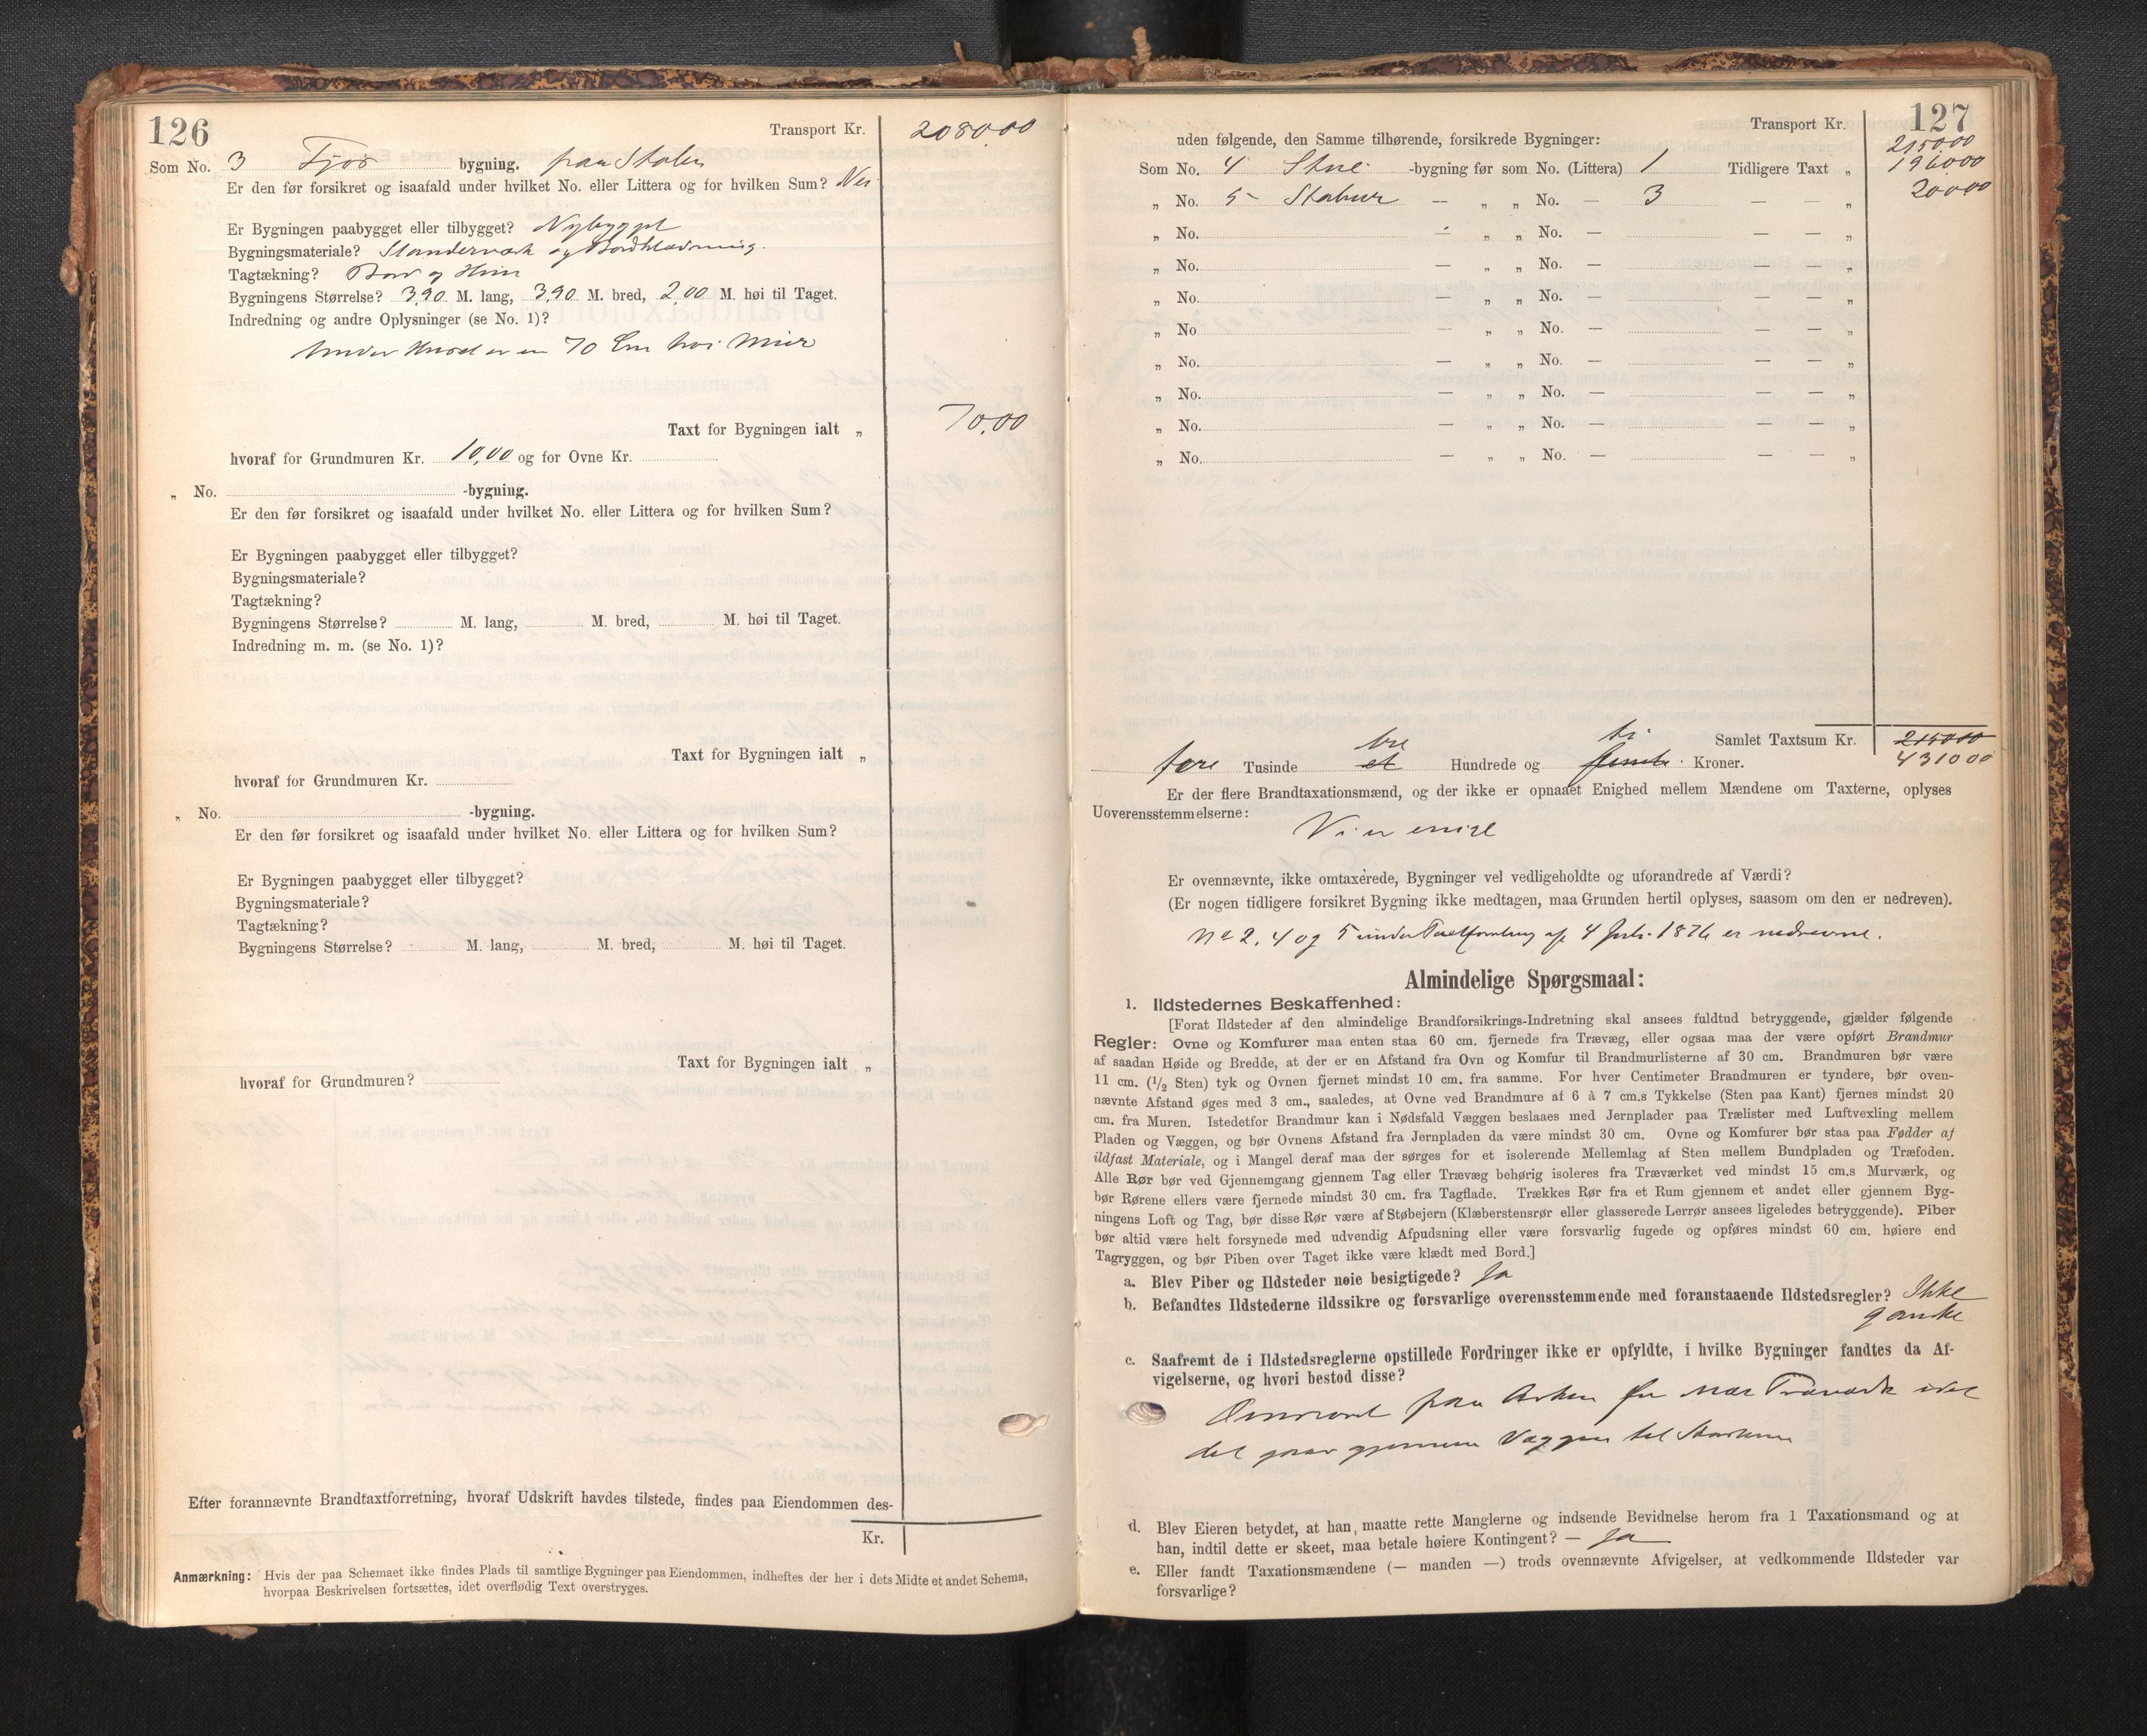 126
Transport Kr. 2080 00
Som No. 3 Fjøs bygning. paa Stølen
Er den før forsikret og isaafald under hvilket No. eller Littera og for hvilken Sum? Nei
Er Bygningen paabygget eller tilbygget? Nybygget
Bygningsmateriale? Standerværk og Bordklædning.
Tagtækning?
Bygningens Størrelse? 3,90 M. lang, 3,90 M. bred, 2,00 M. høi til Taget.
Indredning og andre Oplysninger (se No. 1)?
Under Huset er en 70 Cm høi Muur
Taxt for Bygningen ialt „ 70,00
hvoraf for Grundmuren Kr. 10,00 og for Ovne Kr.
„ No. -bygning.
Er den før forsikret og isaafald under hvilket No. eller Littera og for hvilken Sum?
Er Bygningen paabygget eller tilbygget?
Bygningsmateriale?
Tagtækning?
Bygningens Størrelse? M. lang, M. bred, M. høi til Taget.
Indredning m. m. (se No. 1)?
Taxt for Bygningen ialt „
hvoraf for Grundmuren Kr.
„ No. -bygning.
Er den før forsikret og isaafald under hvilket No. eller Littera og for hvilken Sum?
Er Bygningen paabygget eller tilbygget?
Bygningsmateriale?
Tagtækning?
Bygningens Størrelse? M. lang, M. bred, M. høi til Taget.
Taxt for Bygningen ialt „
hvoraf for Grundmuren?
Efter forannævnte Brandtaxtforretning, hvoraf Udskrift havdes tilstede, findes paa Eiendommen des-
Kr.
Anmærkning: Hvis der paa Schemaet ikke findes Plads til samtlige Bygninger paa Eiendommen, indheftes der her i dets Midte et andet Schema,
hvorpaa Beskrivelsen fortsættes, idet overflødig Text overstryges.
127
Transport Kr. 2150.00
uden følgende, den Samme tilhørende, forsikrede Bygninger:
Som No. 4 Stue -bygning før som No. (Littera) 1 Tidligere Taxt „ 1960 00
„ No. 5 Stabur — „ „ No. — 3 — — „ 200 00
„ No. — „ „ No. — — — „
„ No. — „ „ No. — — — „
„ No. — „ „ No. — — — „
„ No — „ „ No. — — — „
„ No. — „ „ No. — — — „
„ No. — „ „ No. — — — „
„ No. — „ „ No. — — — „
„ No. — „ „ No. — — — „
Samlet Taxtsum Kr. 2150 00
tre ti
fire Tusinde et Hundrede og femti Kroner. 4310 00
Er der flere Brandtaxationsmænd, og der ikke er opnaaet Enighed mellem Mændene om Taxterne, oplyses
Uoverensstemmelserne:
Vi er enige
Er ovennævnte, ikke omtaxerede, Bygninger vel vedligeholdte og uforandrede af Værdi?
(Er nogen tidligere forsikret Bygning ikke medtagen, maa Grunden hertil oplyses, saasom om den er nedreven).
No 2, 4 og 5 under Taxtforretning af 4 Juli 1876 er nedrevne.
Almindelige Spørgsmaal:
1. Ildstedernes Beskaffenhed:
[Forat Ildsteder af den almindelige Brandforsikrings-Indretning skal ansees fuldtud betryggende, gjælder følgende
Regler: Ovne og Komfurer maa enten staa 60 cm. fjernede fra Trævæg, eller ogsaa maa der være opført Brandmur
af saadan Høide og Bredde, at der er en Afstand fra Ovn og Komfur til Brandmurlisterne af 30 cm. Brandmuren bør være
11 cm. (1/2 Sten) tyk og Ovnen fjernet mindst 10 cm. fra samme. For hver Centimeter Brandmuren er tyndere, bør oven-
nævnte Afstand øges med 3 cm., saaledes, at Ovne ved Brandmure af 6 à 7 cm.s Tykkelse (Sten paa Kant) fjernes mindst 20
cm. fra Muren. Istedetfor Brandmur kan i Nødsfald Væggen beslaaes med Jernplader paa Trælister med Luftvexling mellem
Pladen og Væggen, og bør Ovnens Afstand fra Jernpladen da være mindst 30 cm. Ovne og Komfurer bør staa paa Fødder af
ildfast Materiale, og i Mangel deraf maa der sørges for et isolerende Mellemlag af Sten mellem Bundpladen og Træfoden.
Alle Rør bør ved Gjennemgang gjennem Tag eller Trævæg behørig isoleres fra Træværket ved mindst 15 cm.s Murværk, og
bør Rørene ellers være fjernede mindst 30 cm. fra Tagflade. Trækkes Rør fra et Rum gjennem et andet eller gjennem Byg-
ningens Loft og Tag, bør disse Rør være af Støbejern (Klæberstensrør eller glasserede Lerrør ansees ligeledes betryggende). Piber
bør altid være helt forsynede med udvendig Afpudsning eller være forsvarlig fugede og opføres mindst 60 cm. høiere end
Tagryggen, og bør Piben over Taget ikke være klædt med Bord.]
a. Blev Piber og Ildsteder nøie besigtigede? Ja
b. Befandtes Ildstederne ildssikre og forsvarlige overensstemmende med foranstaaende Ildstedsregler? Ikke
ganske
c. Saafremt de i Ildstedsreglerne opstillede Fordringer ikke er opfyldte, i hvilke Bygninger fandtes da Af-
vigelserne, og hvori bestod disse?
paa nær Træværk idet
det gaar gjennem Væggen til
d. Blev Eieren betydet, at han maatte rette Manglerne og indsende Bevidnelse herom fra 1 Taxationsmand og at
han, indtil dette er skeet, maa betale høiere Kontingent? — Ja
e. Eller fandt Taxationsmændene (— manden —) trods ovennævnte Afvigelser, at vedkommende Ildsteder var
forsvarlige?